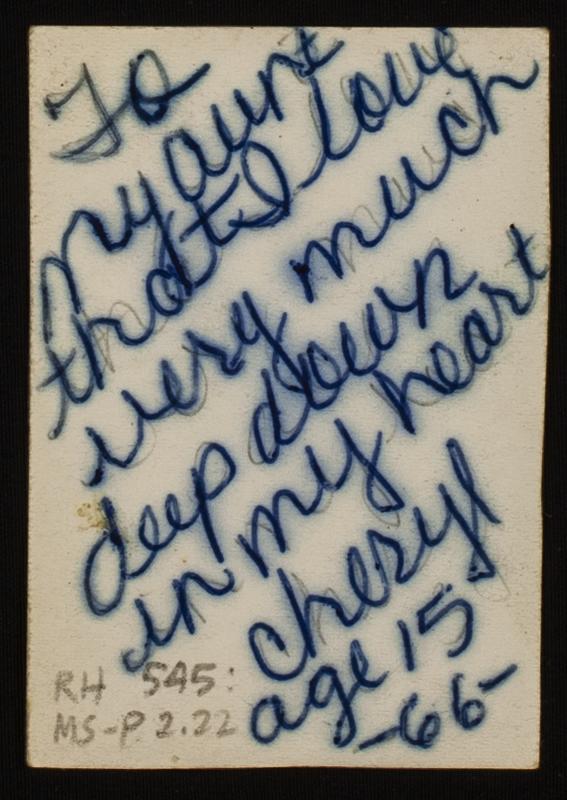 To
my aunt
that I love
very much
deep down
in my heart
cheryl
age 15
-66-
RH 545:
MS-P 2.22